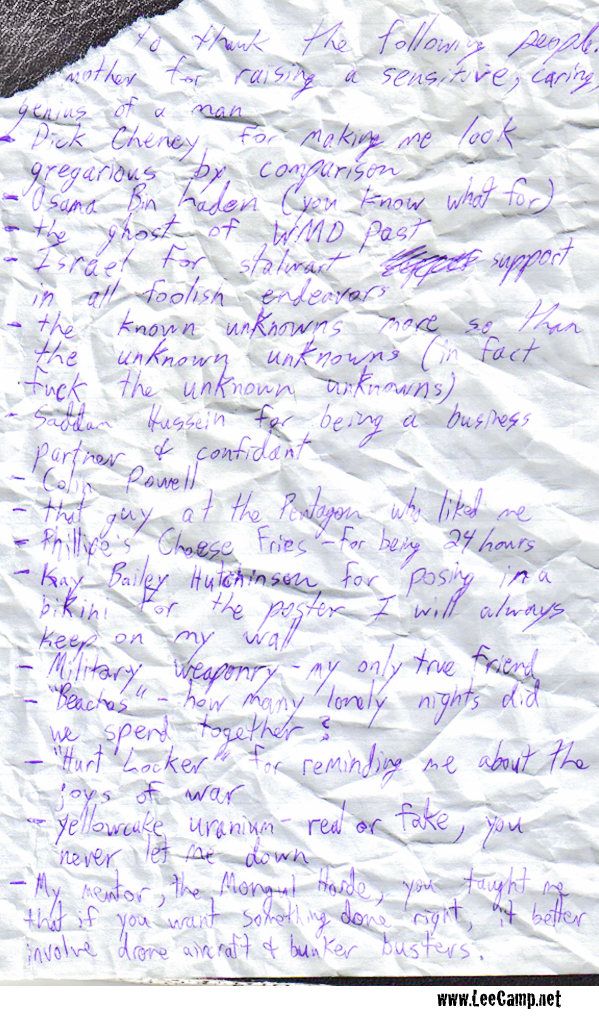 to thank the following people.
mother for raising a sensitive, caring,
genius of a man
- Dick Cheney for making me look
gregarious by comparison
- Osama Bin Laden (you know what for)
- the ghost of WMD past
- Israel for stalwart support
in all foolish endeavors
- the known unknowns more so than
the unknown unknowns (in fact
fuck the unknown unknowns)
- Saddam Hussein for being a business
partner & confidant
- Colin Powell
- that guy at the Pentagon who liked me
- Phillipe's Cheese Fries - for being 24 hours
- Kay Bailey Hutchinson for posing in a
bikini for the poster I will always
keep on my wall
- Military weaponry - my only true friend
- "Beaches" - how many lonely nights did
we spend together?
- "Hurt Locker" for reminding me about the
joys of war
- yellowcake uranium - real or fake, you
never let me down
- My mentor, the Mongul Horde, you taught me
that if you want something done right, it better
involve drone aircraft & bunker busters.
www.LeeCamp.net